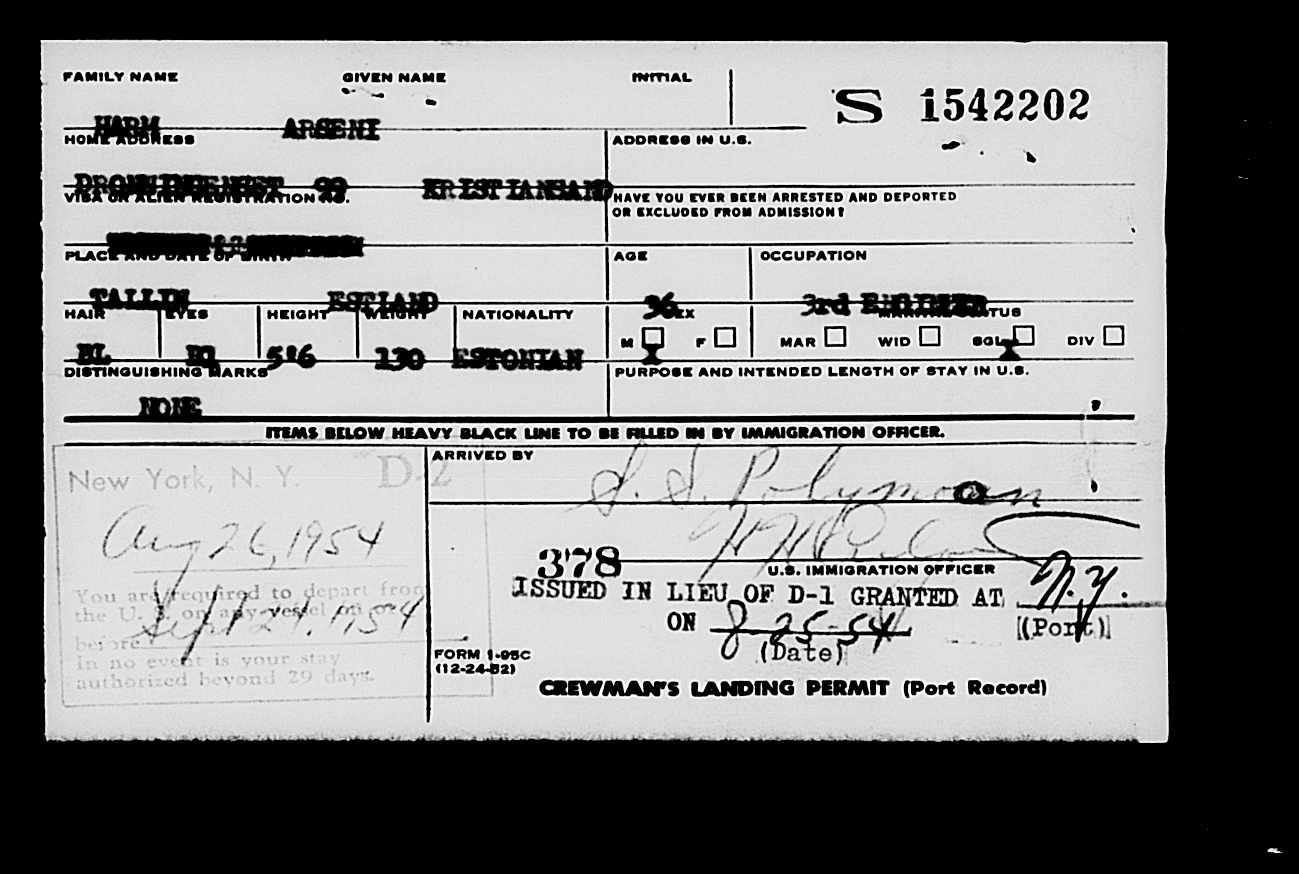 FAMILY NAME GIVEN NAME INITIAL
S 1542202
HARM ARSENI
HOME ADDRESS ADDRESS IN U.S.
99 KRISTIANSAND
VISA OR ALIEN REGISTRATION NO. HAVE YOU EVER BEEN ARRESTED AND DEPORTED
OR EXCLUDED FROM ADMISSION?
PLACE AND DATE OF BIRTH AGE OCCUPATION
TALLIN ESTLAND 36 3rd ENGINEER
HAIR EYES HEIGHT WEIGHT NATIONALITY SEX MARITAL STATUS
M X F MAR WID SGL X DIV
BL 5"6 130 ESTONIAN
DISTINGUISHING MARKS PURPOSE AND INTENDED LENGTH OF STAY IN U.S.
NONE
ITEMS BELOW HEAVY BLACK LINE TO BE FILLED IN BY IMMIGRATION OFFICER.
New York, N. Y. D-2
Aug 26, 1954
You are required to depart from
the U. S. on any vessel on or
before Sept 24. 1954
In no event is your stay
authorized beyond 29 days.
ARRIVED BY
S. S. Polymoon
378
U.S. IMMIGRATION OFFICER
ISSUED IN LIEU OF D-1 GRANTED AT N.Y.
(Port)
ON 8-25-54
(Date)
FORM I-95C
(12-24-52)
CREWMAN'S LANDING PERMIT (Port Record)